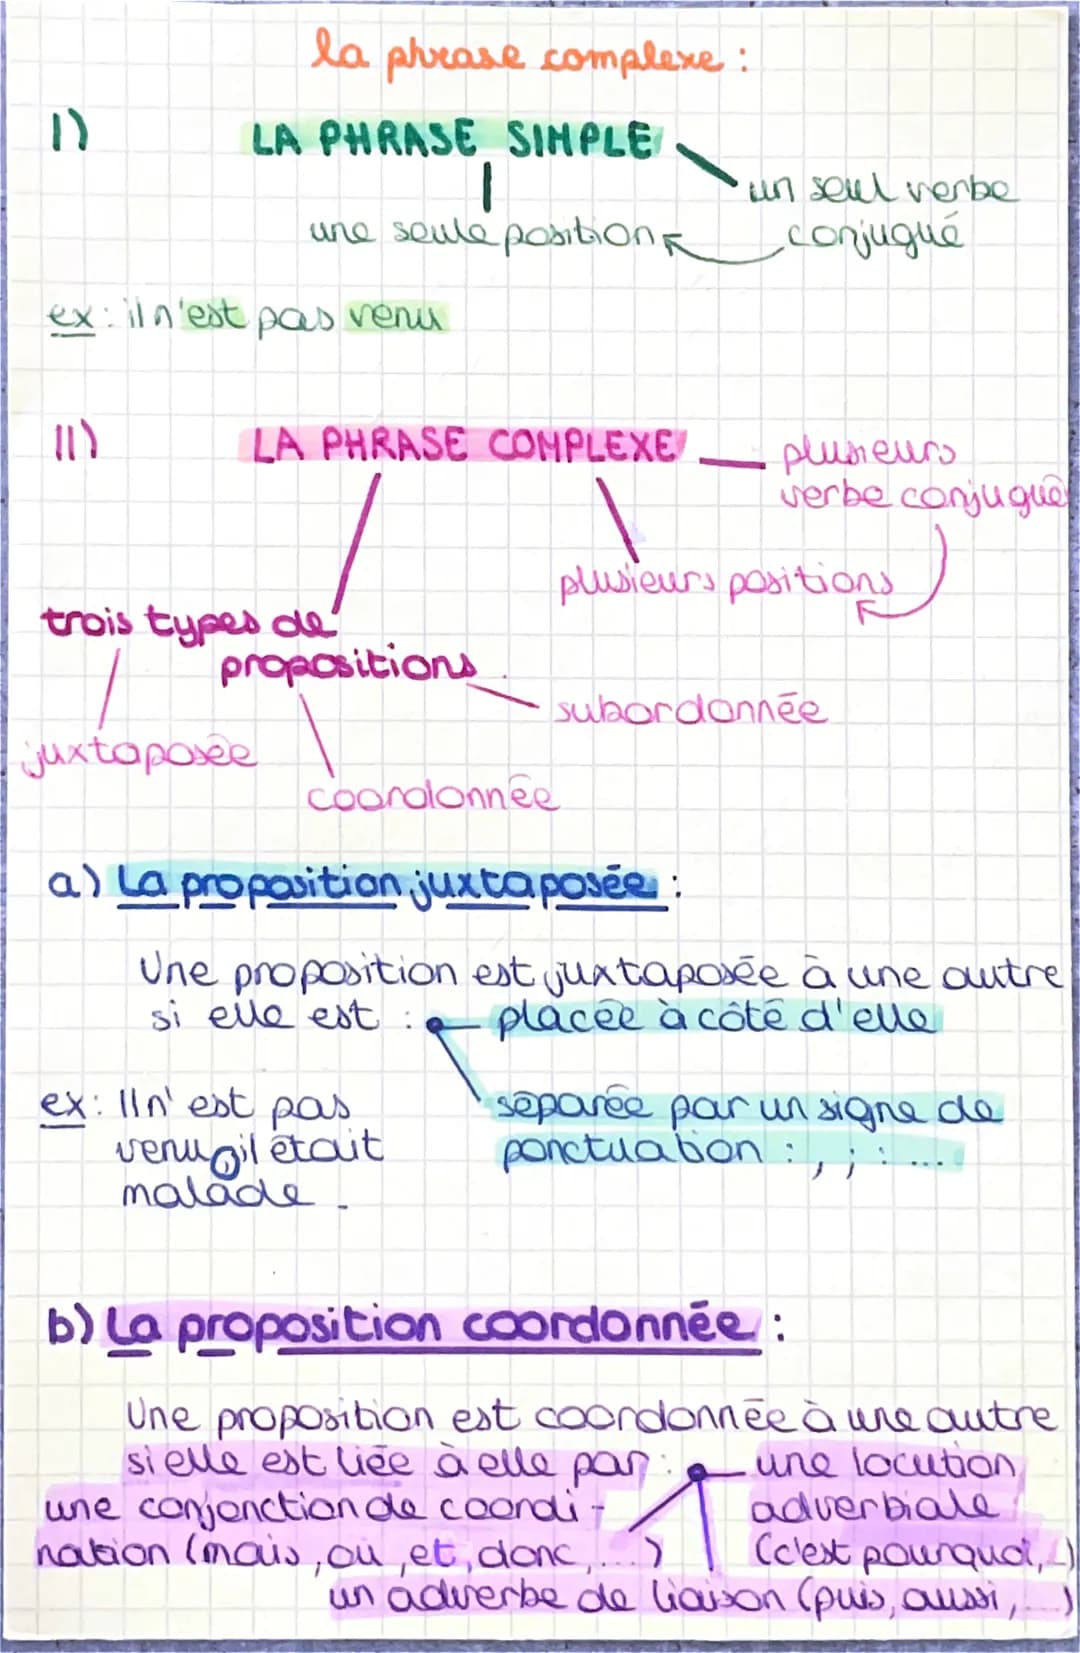 la phrase complexe :
I) LA PHRASE SIMPLE
un seul verbe
conjugué
une seule position
ex : il n'est pas venu
II) LA PHRASE COMPLEXE
plusieurs
verbe conjugué
plusieurs positions
trois types de
propositions
subordonnée
juxtaposée
coordonnée
a) La proposition juxtaposée :
Une proposition est juxtaposée à une autre
si elle est : placée à côté d'elle
ex : Il n'est pas
venu, il était
malade.
séparée par un signe de
ponctuation : , ; : ...
b) La proposition coordonnée :
Une proposition est coordonnée à une autre
si elle est liée à elle par :
une conjonction de coordi-
nation (mais, où, et, donc, ...)
une locution
adverbiale
(c'est pourquoi, ...)
un adverbe de liaison (puis, aussi, ...)